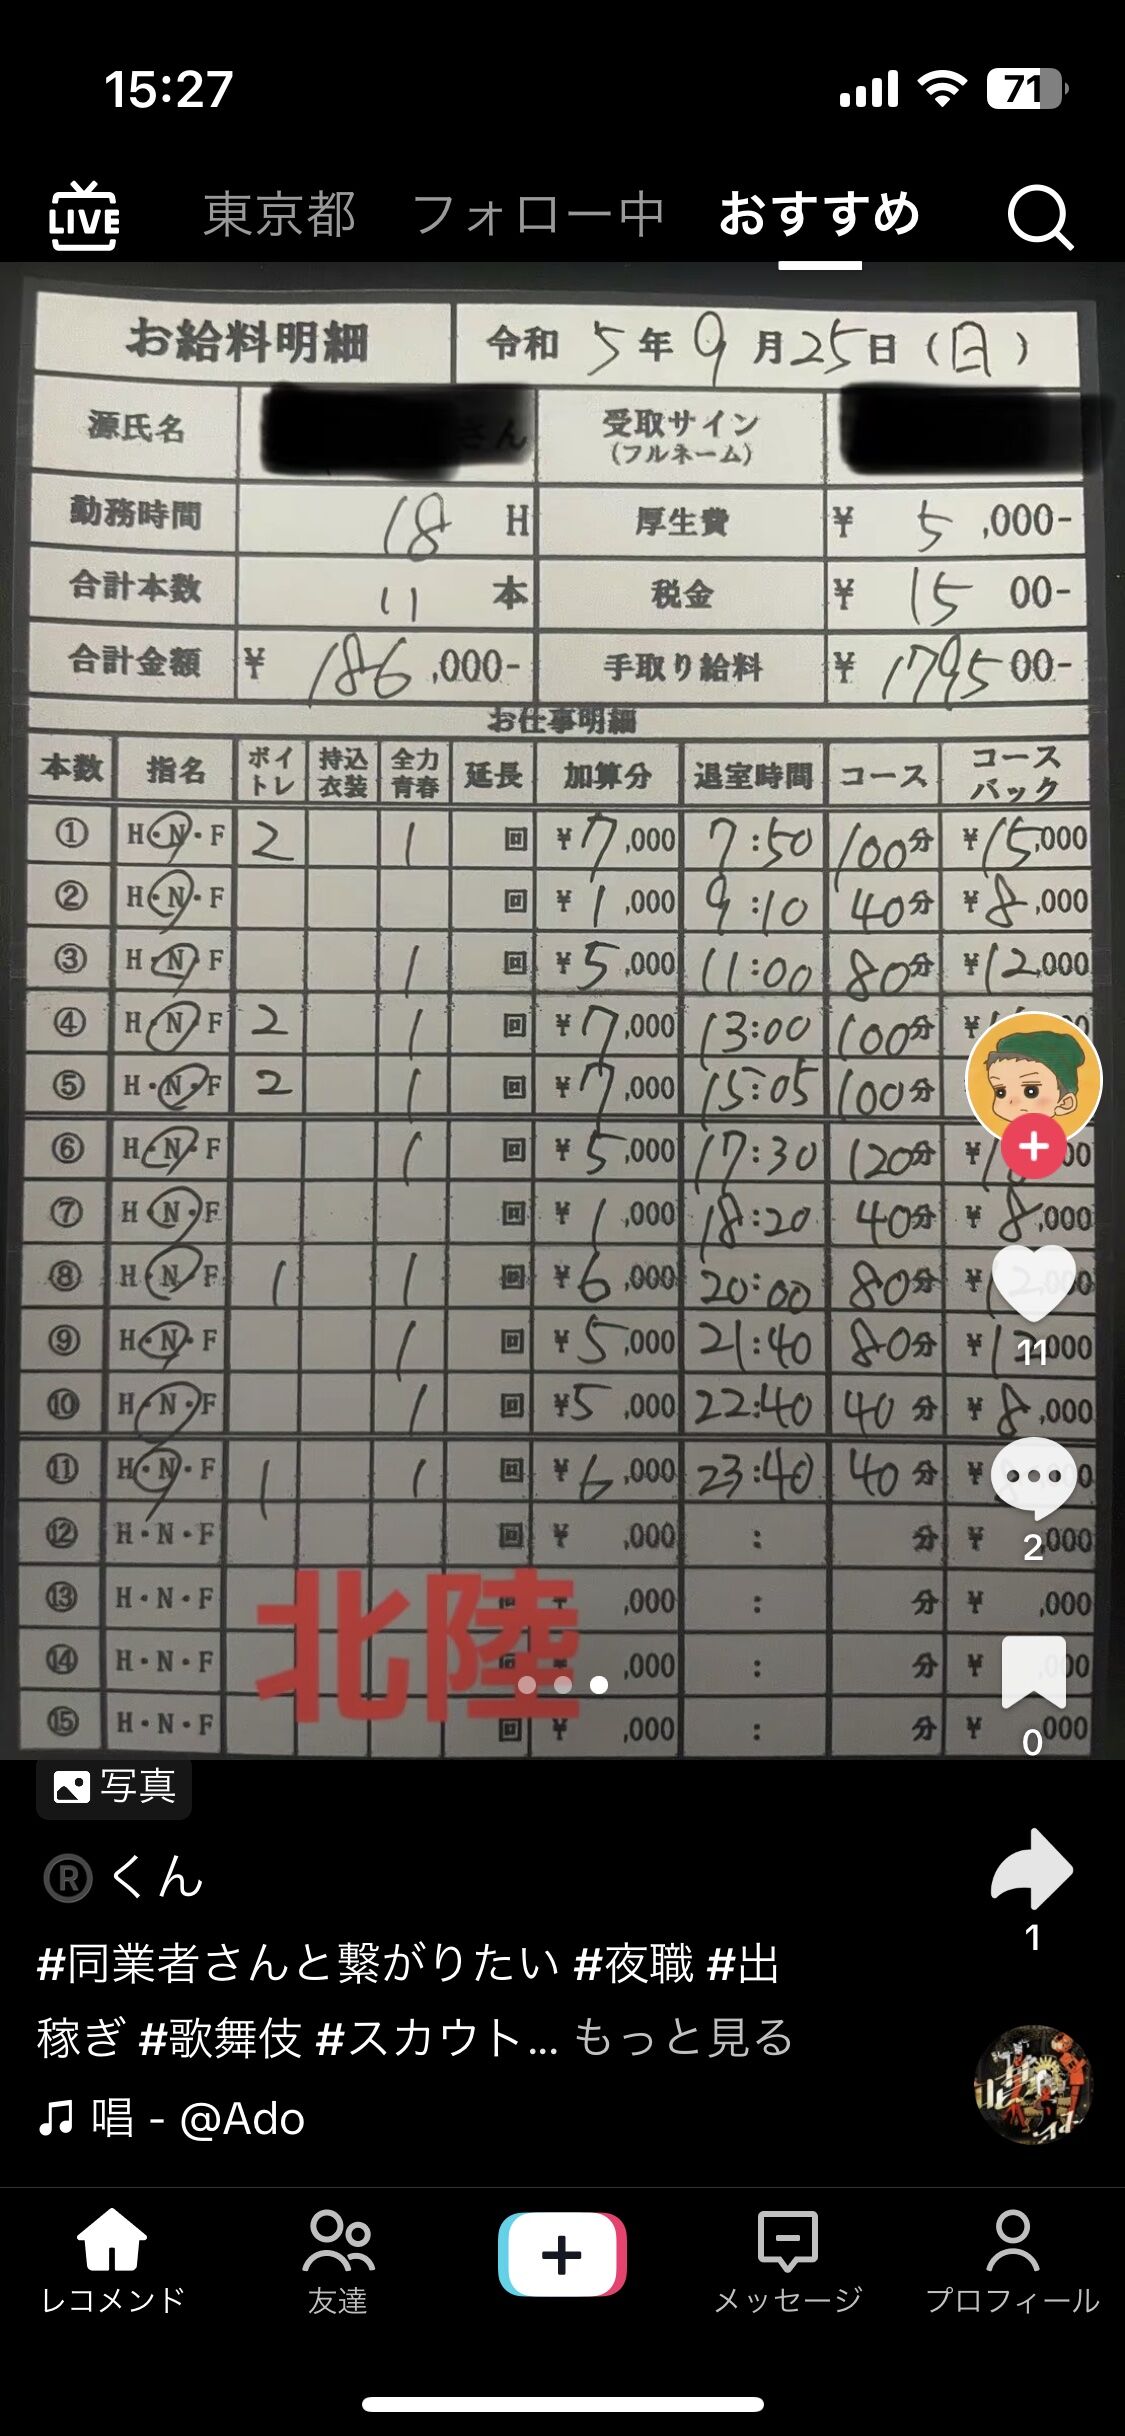 15:27
71
LIVE 東京都 フォロー中 おすすめ
お給料明細 令和 5 年 9 月 25 日 (日)
源氏名 さん 受取サイン
(フルネーム)
勤務時間 18 H 厚生費 ¥ 5 ,000-
合計本数 11 本 税金 ¥ 15 00-
合計金額 ¥ 186 ,000- 手取り給料 ¥ 1795 00-
お仕事明細
本数 指名 ボイトレ 持込衣装 全力青春 延長 加算分 退室時間 コース コースバック
① H・N・F 2 1 回 ¥7,000 7:50 100分 ¥15,000
② H・N・F 回 ¥1,000 9:10 40分 ¥8,000
③ H・N・F 1 回 ¥5,000 11:00 80分 ¥12,000
④ H・N・F 2 1 回 ¥7,000 13:00 100分 ¥
⑤ H・N・F 2 1 回 ¥7,000 15:05 100分
⑥ H・N・F 1 回 ¥5,000 17:30 120分 ¥
⑦ H・N・F 回 ¥1,000 18:20 40分 ¥8,000
⑧ H・N・F 1 1 回 ¥6,000 20:00 80分 ¥12,000
⑨ H・N・F 1 回 ¥5,000 21:40 80分 ¥12,000
⑩ H・N・F 1 回 ¥5,000 22:40 40分 ¥8,000
⑪ H・N・F 1 1 回 ¥6,000 23:40 40分 ¥
⑫ H・N・F 回 ¥ ,000 : 分 ¥ ,000
⑬ H・N・F 回 ¥ ,000 : 分 ¥ ,000
⑭ H・N・F 回 ¥ ,000 : 分 ¥ ,000
⑮ H・N・F 回 ¥ ,000 : 分 ¥ ,000
北陸
11
2
0
1
写真
®くん
#同業者さんと繋がりたい #夜職 #出
稼ぎ #歌舞伎 #スカウト... もっと見る
唱 - @Ado
レコメンド 友達 メッセージ プロフィール